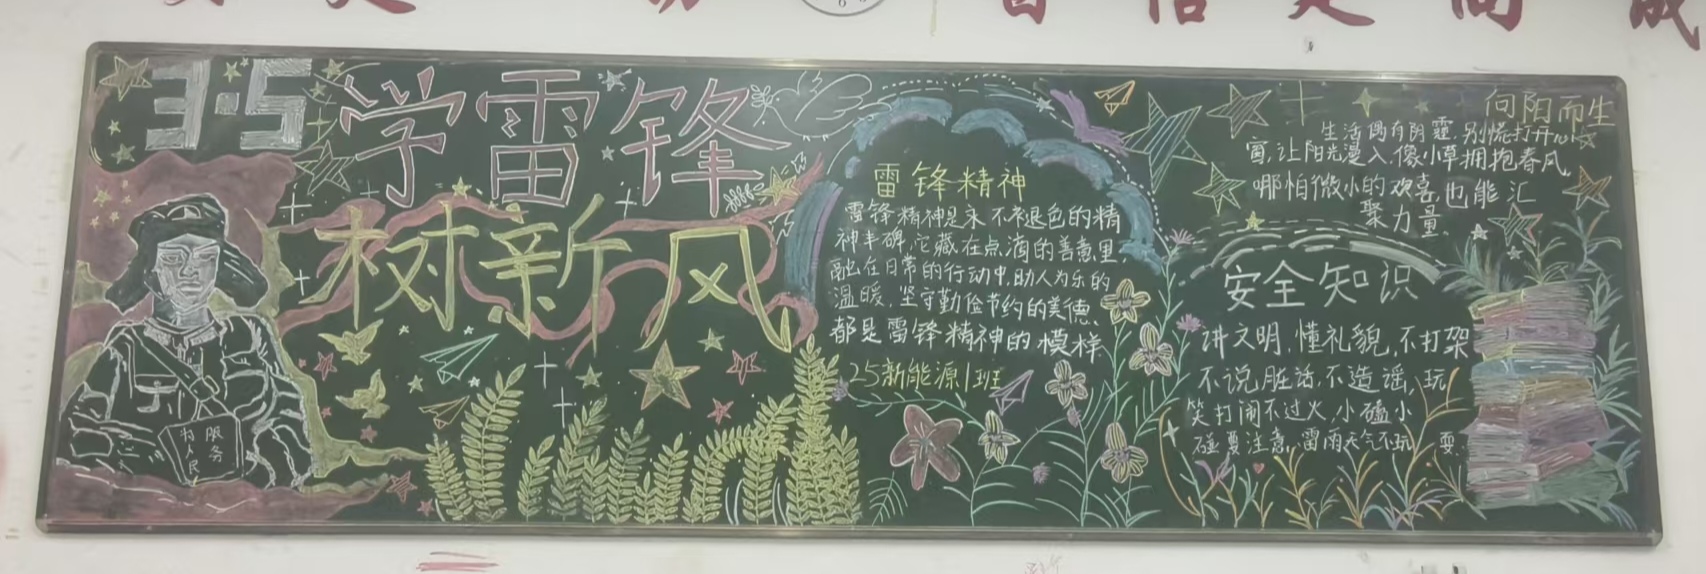 自信是
3·5
学雷锋
树新风
为 服
人 务
民
雷锋精神
雷锋精神是永不褪色的精
神丰碑,它藏在点滴的善意里,
融在日常的行动中,助人为乐的
温暖,坚守勤俭节约的美德,
都是雷锋精神的模样
25新能源1班
向阳而生
生活偶有阴霾,别慌打开心
窗,让阳光漫入,像小草拥抱春风,
哪怕微小的欢喜,也能汇
聚力量
安全知识
讲文明,懂礼貌,不打架
不说脏话,不造谣,玩
笑打闹不过火,小磕小
碰要注意,雷雨天气不玩耍